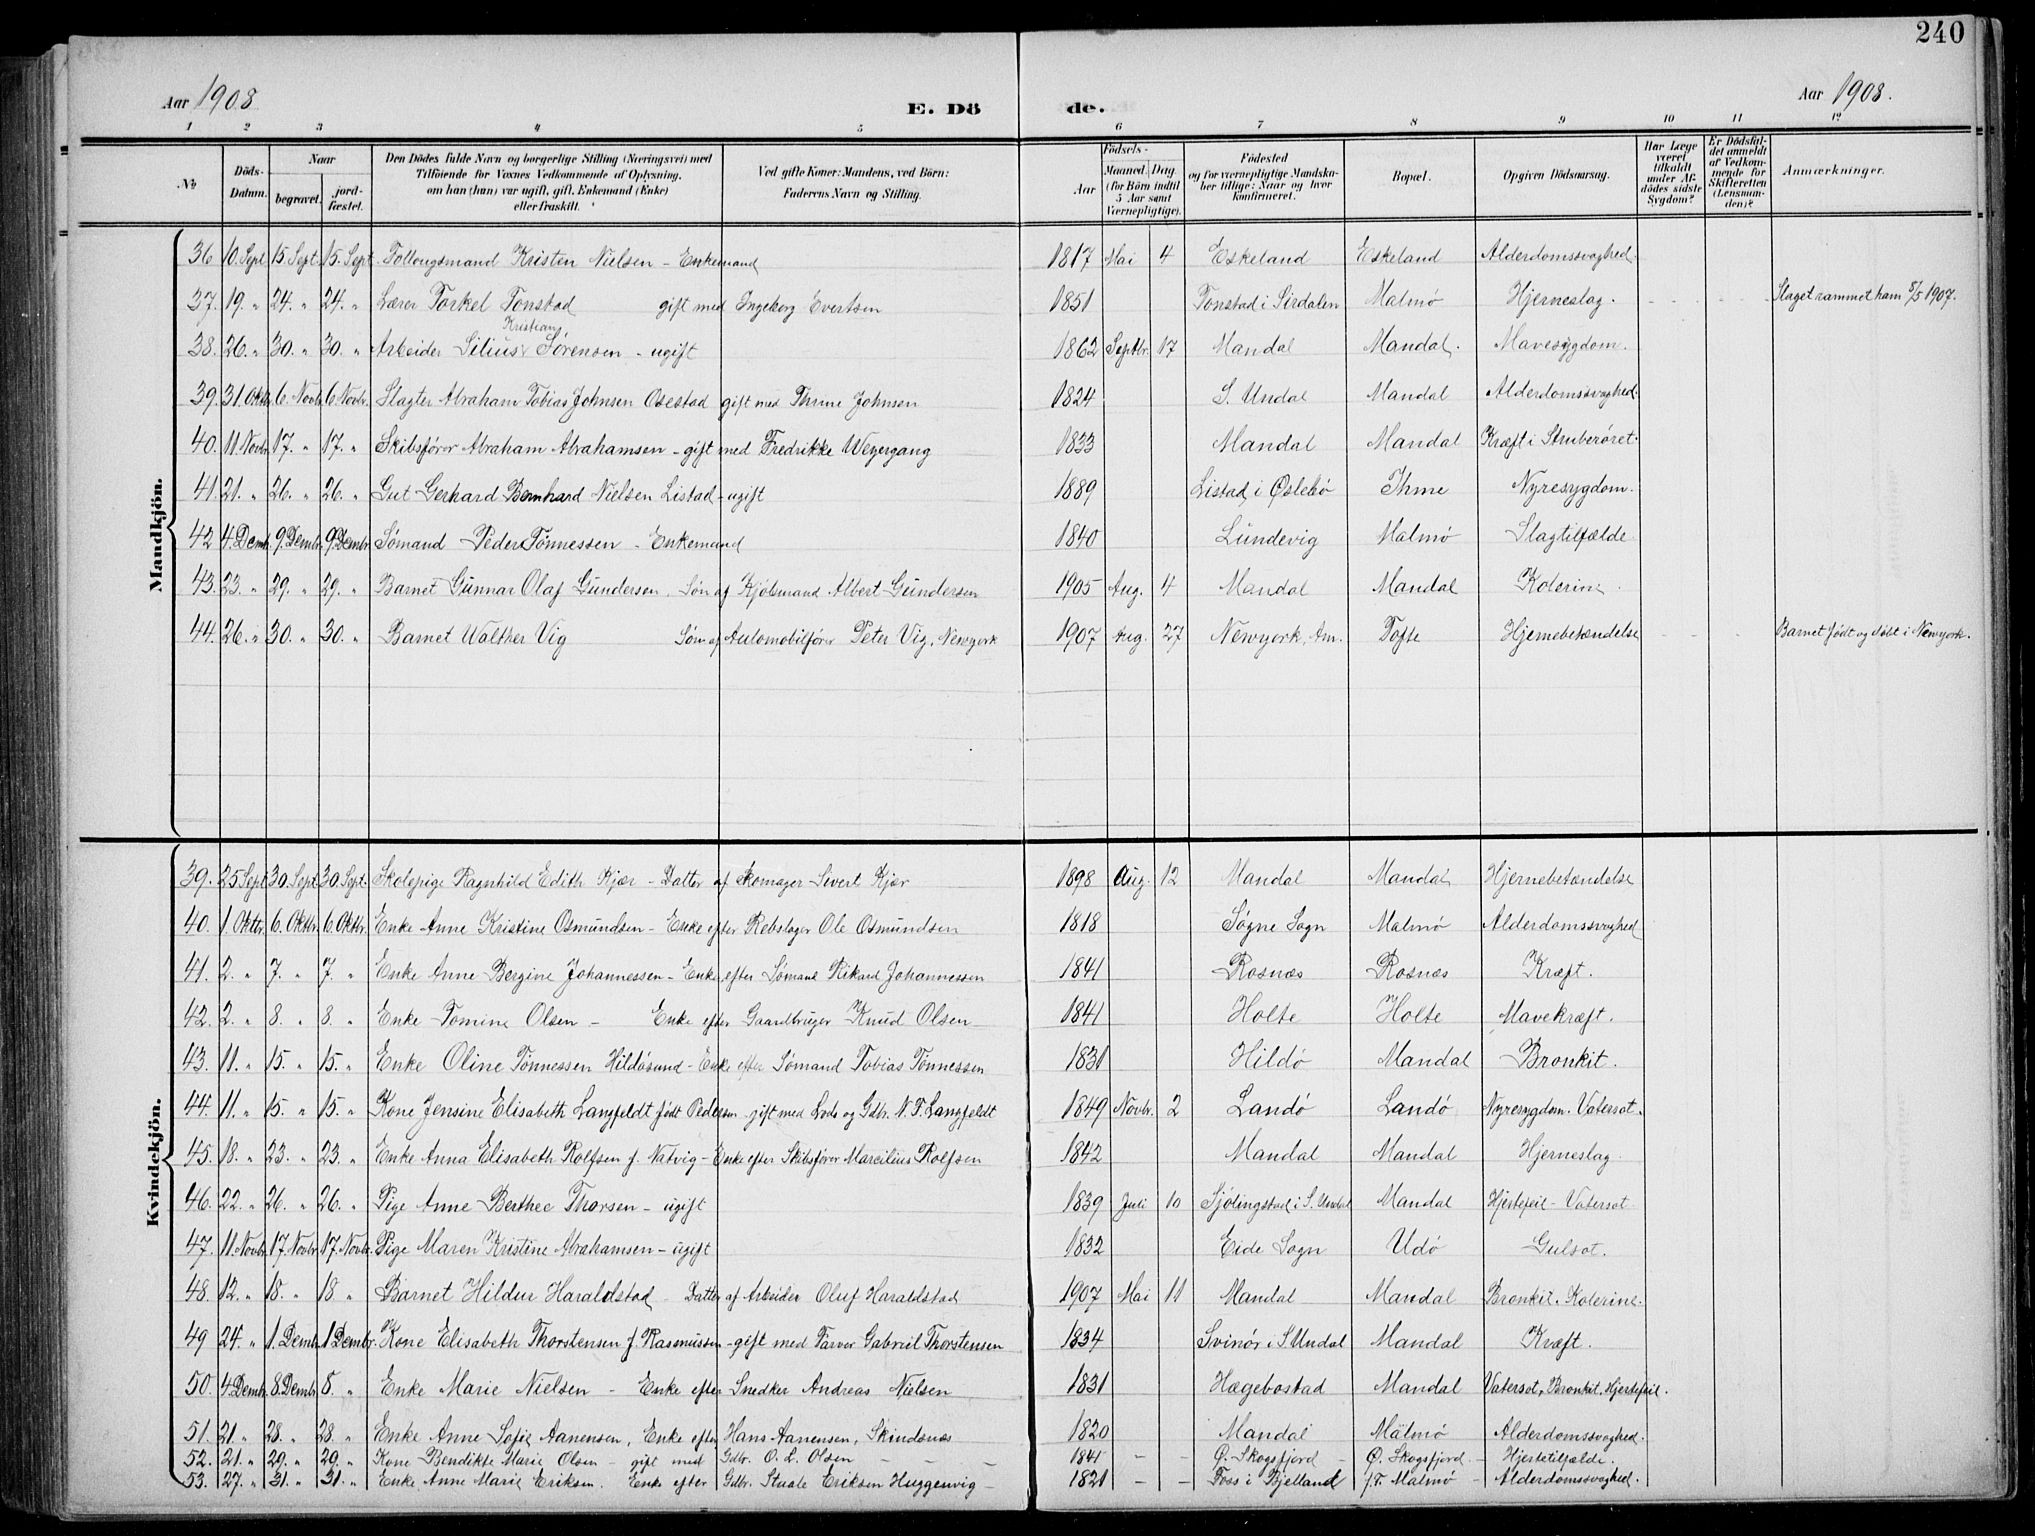 240
Aar 1908
E. Dö de.
Aar 1908.
1 2 3 4 5 6 7 8 9 10 11 12
No
Döds-Datum.
Naar
begravet.
jord-fæstet.
Den Dödes fulde Navn og borgerlige Stilling (Næringsvei) med
Tilföiende for Voxnes Vedkommende af Oplysning,
om han (hun) var ugift, gift, Enkemand (Enke)
eller fraskilt.
Ved gifte Koner: Mandens, ved Börn:
Faderens Navn og Stilling.
Födsels-
Aar
Maaned Dag
(for Börn indtil
5 Aar samt
Værnepligtige).
Födested
og for værnepligtige Mandska-
ber tillige: Naar og hvor
konfirmeret.
Bopæl.
Opgiven Dödsaarsag.
Har Læge
været
tilkaldt
under Af-
dödes sidste
Sygdom?
Er Dödsfal-
det anmeldt
af Vedkom-
mende for
Skifteretten
(Lensman-
den)?
Anmærkninger.
Mandkjön.
36 10. Sept. 15 Sept. 15. Sept. Follougsmand Kristen Nielsen - Enkemand 1817 Mai 4 Eskeland Eskeland Alderdomssvaghed.
37. 19. " 24. " 24. " Lærer Torkel Tonstad gift med Ingeborg Evertsen 1851 Tonstad i Sirdalen Malmö Hjerneslag. Slaget rammet ham 8/5 1907.
Kristian
38. 26. " 30. " 30. " Arbeider Silius Sörensen - ugift 1862 Septbr. 17 Mandal Mandal. Mavesygdom.
39. 31. Oktbr. 6. Novbr. 6 Novbr. Slagter Abraham Tobias Johnsen Osestad gift med Thrine Johnsen 1824 S. Undal Mandal Alderdomssvaghed.
40. 11. Novbr. 17. " 17. " Skibsförer Abraham Abrahamsen - gift med Fredrikke Weyergang 1833 Mandal Mandal Kræft i Struberöret.
41. 21. " 26. " 26. " Gut Gerhard Bernhard Nielsen Listad - ugift 1889 Listad i Öslebö Ihme Nyresygdom.
42 4. Dembr. 9. Dembr. 9. Dembr. Sömand Peder Tönnessen - Enkemand 1840 Lundevig Malmö Slagtilfælde
43. 23. " 29. " 29. " Barnet Gunnar Olaf Gundersen. Sön af Kjölsmand Albert Gundersen 1905 Aug. 4 Mandal Mandal Kolerine.
44. 26. " 30. " 30. " Barnet Walther Vig Sön af Automobilförer Peter Vig, Newyork 1907 Aug. 27 Newyork, Am. Tofte Hjernebetændelse Barnet födt og döbt i Newyork.
Kvindekjön.
39. 25 Sept. 30. Sept. 30 Sept. Skolepige Ragnhild Edith Kjær - Datter af Skomager Severt Kjær 1898 Aug. 12 Mandal Mandal Hjernebetændelse
40. 1. Oktbr. 6. Oktbr. 6. Oktbr. Enke Anne Kristine Osmundsen - Enke efter Rebslager Ole Osmundsen 1818 Sögne Sogn Malmö Alderdomssvaghed
41. 2. " 7. " 7. " Enke Anne Bergine Johannessen - Enke efter Sömand Rikard Johannessen 1841 Rosnæs Rosnæs Kræft.
42. 2. " 8. " 8. " Enke Tomine Olsen - Enke efter Gaardbruger Knud Olsen 1841 Holte Holte Mavekræft.
43. 11. " 15. " 15. " Enke Oline Tönnessen Hildösund - Enke efter Sömand Tobias Tönnessen 1831 Hildö Mandal Bronkit.
44. 11. " 15. " 15. " Kone Jensine Elisabeth Langfeldt födt Pedersen - gift med Lods og Gdbr. N. T. Langfeldt 1849 Novbr. 2 Landö Landö Nyresygdom. Vatersot.
45. 18. " 23. " 23. " Enke Anna Elisabeth Rolfsen f. Natvig - Enke efter Skibsförer Marcilius Rolfsen 1842 Mandal Mandal Hjerneslag.
46. 22. " 26. " 26. " Pige Anne Berthee Thorsen - ugift 1839 Juli 10 Sjölingstad i S. Undal Mandal Hjertefeil - Vatersot.
47. 11. Novbr. 17. Novbr. 17. Novbr. Pige Maren Kristine Abrahamsen - ugift 1832 Eide Sogn Udö Gulsot.
48. 12. " 18. " 18 " Barnet Hildur Haraldstad Datter af Arbeider Oluf Haraldstad 1907 Mai 11 Mandal Mandal Bronkit. Kolerine.
49 24. " 1. Dembr. 1 Dembr. Kone Elisabeth Thorstensen f. Rasmussen - gift med Farver Gabriel Thorstensen 1834 Svinör i S. Undal Mandal Kræft.
50. 4. Dembr. 8. Dembr. 8. " Enke Marie Nielsen - Enke efter Snedker Andreas Nielsen 1831 Hægebostad Mandal Vatersot, Bronkit, Hjertefeil.
51. 21. " 28. " 28. " Enke Anne Sofie Aanensen, Enke efter Hans Aanensen, Skindsnæs 1820 Mandal Malmö Alderdomssvaghed.
52. 21. " 29. " 29. " Kone Bendikte Marie Olsen - gift med Gdbr. O. L. Olsen - 1841 - - Ö. Skogsfjord - Ö. Skogsfjord - Hjertetilfælde.
53. 27. " 31. " 31. " Enke Anne Marie Eriksen. Enke efter Gdbr. Staale Eriksen Huggenvig - 1821 - - Foss i Bjelland f.T. Malmö - Alderdomssvaghed.